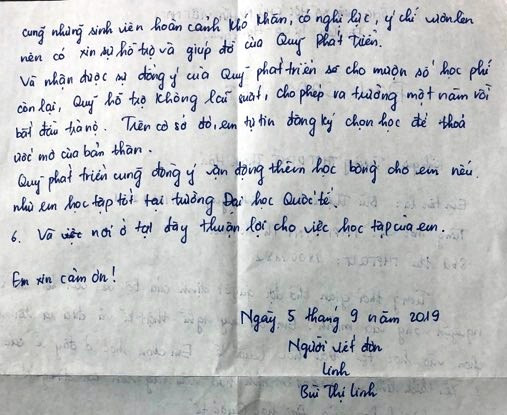 cùng những sinh viên hoàn cảnh khó khăn, có nghị lực, ý chí vươn lên
nên có xin sự hỗ trợ và giúp đỡ của Quỹ Phát Triển.
Và nhận được sự đồng ý của Quỹ phát triển sẽ cho mượn số học phí
còn lại, Quỹ hỗ trợ không lãi suất, cho phép ra trường một năm rồi
bắt đầu trả nợ. Trên cơ sở đó, em tự tin đăng ký chọn học để thoả
ước mơ của bản thân.
Quỹ phát triển cũng đồng ý vận động thêm học bổng cho em nếu
như em học tập tốt tại trường Đại học Quốc tế.
6. Và việc nơi ở tại đây thuận lợi cho việc học tập của em.
Em xin cảm ơn!
Ngày 5 tháng 9 năm 2019
Người viết đơn
Linh
Bùi Thị Linh